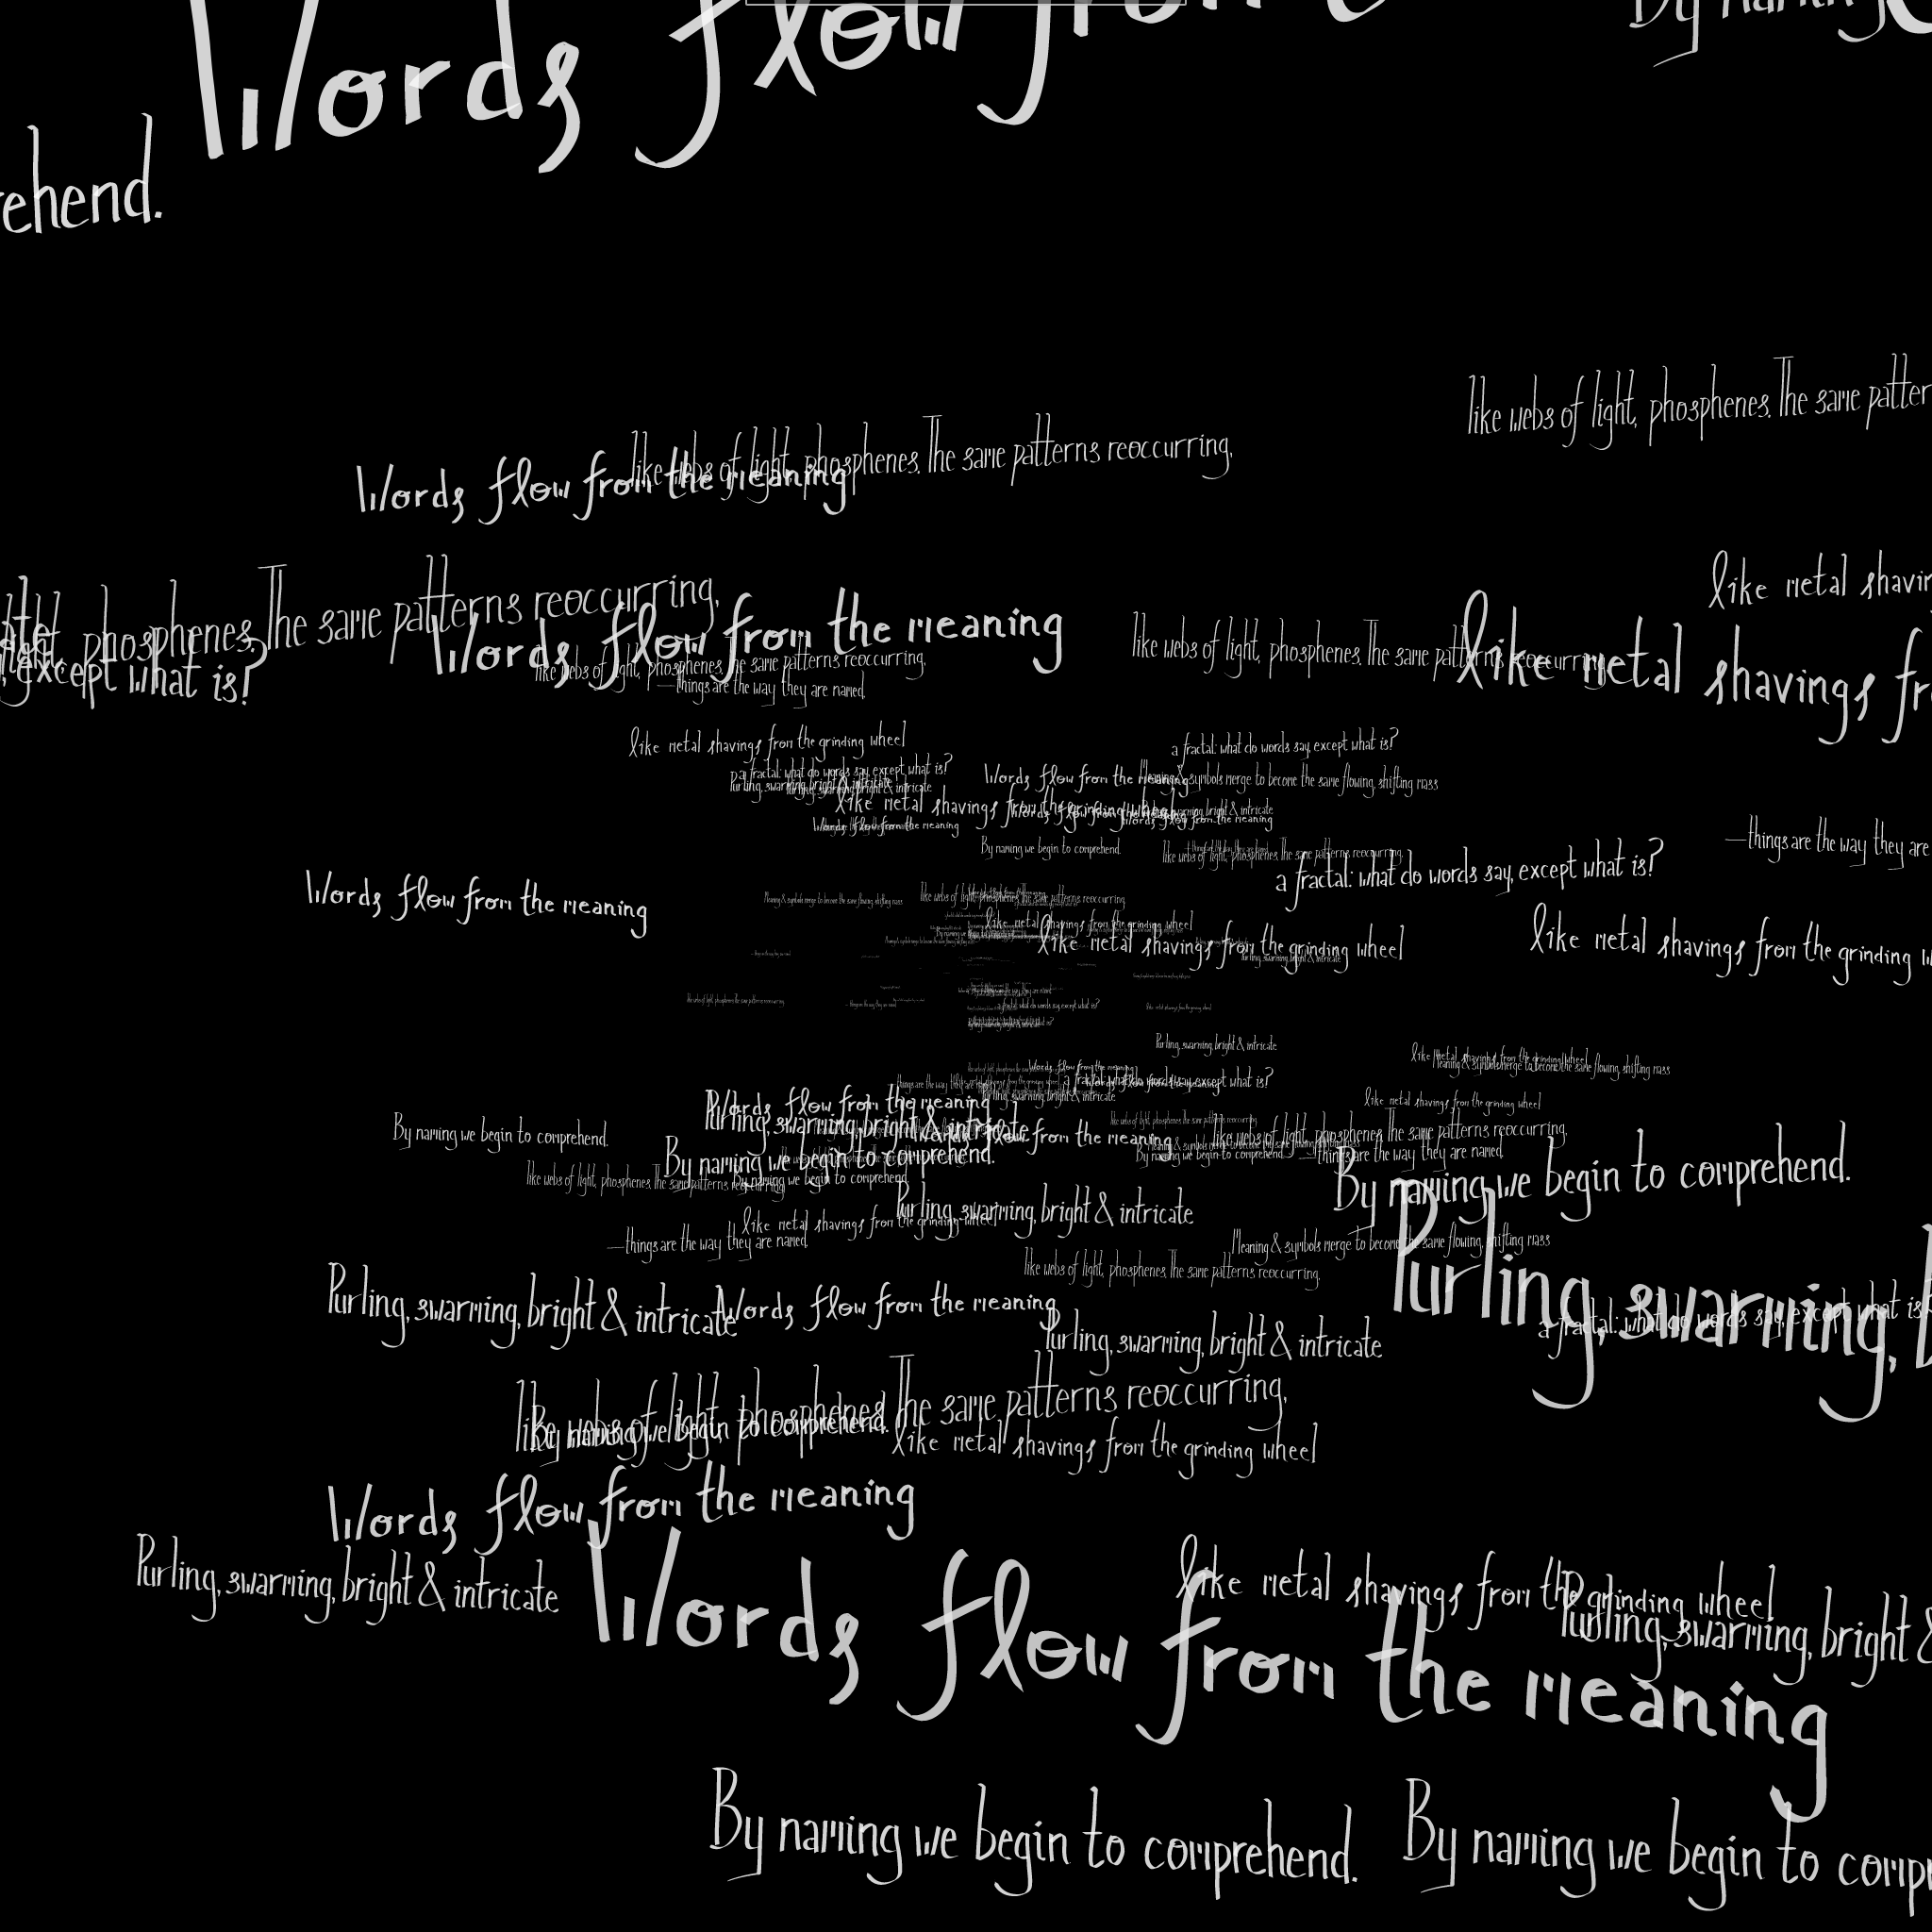 Words flow from
By naming
ehend.
like webs of light, phosphenes. The same patter
like webs of light, phosphenes. The same patterns reoccurring,
Words flow from the meaning
like metal shavin
light, phosphenes. The same patterns reoccurring,
Words flow from the meaning
like metal shavings fr
like webs of light, phosphenes. The same patterns reoccurring,
except what is?
like webs of light, phosphenes. The same patterns reoccurring,
—things are the way they are named.
like metal shavings from the grinding wheel
a fractal: what do words say, except what is?
a fractal: what do words say, except what is?
Words flow from the meaning
Meaning & symbols merge to become the same flowing, shifting mass
Purling, swarming, bright & intricate
like metal shavings from the grinding wheel
Words flow from the meaning
Words flow from the meaning
By naming we begin to comprehend.
like webs of light, phosphenes. The same patterns reoccurring,
—things are the way they are
a fractal: what do words say, except what is?
Words flow from the meaning
Meaning & symbols merge to become the same flowing, shifting mass
like webs of light, phosphenes. The same patterns reoccurring,
like metal shavings from the grinding wheel
like metal shavings from the grinding wheel
like metal shavings from the grinding w
like webs of light, phosphenes. The same patterns reoccurring,
a fractal: what do words say, except what is?
like metal shavings from the grinding wheel
Purling, swarming, bright & intricate
like metal shavings from the grinding wheel
Meaning & symbols merge to become the same flowing, shifting mass
Words flow from the meaning
a fractal: what do words say, except what is?
Purling, swarming, bright & intricate
like metal shavings from the grinding wheel
Words flow from the meaning
Purling, swarming, bright & intricate
By naming we begin to comprehend.
Words flow from the meaning
like webs of light, phosphenes. The same patterns reoccurring,
like webs of light, phosphenes. The same patterns reoccurring,
By naming we begin to comprehend.
By naming we begin to comprehend.
—things are the way they are named.
By naming we begin to comprehend.
like webs of light, phosphenes. The same patterns reoccurring,
By naming we begin to comprehend.
Purling, swarming, bright & intricate
like metal shavings from the grinding wheel
—things are the way they are named.
Meaning & symbols merge to become the same flowing, shifting mass
like webs of light, phosphenes. The same patterns reoccurring,
Purling, swarming, b
Purling, swarming, bright & intricate
Words flow from the meaning
a fractal: what do words say, except what is
Purling, swarming, bright & intricate
like webs of light, phosphenes. The same patterns reoccurring,
By naming we begin to comprehend.
like metal shavings from the grinding wheel
Words flow from the meaning
Purling, swarming, bright & intricate
like metal shavings from the grinding wheel
Purling, swarming, bright &
Words flow from the meaning
By naming we begin to comprehend.
By naming we begin to compr